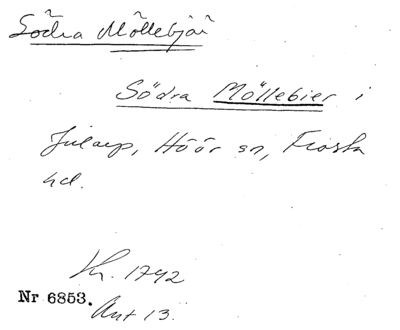 Södra Möllebjär
Södra Möllebier i
Jularp, Höör sn, Frosta
hd.
Kr. 1742
Nr 6853.
Ant 13.